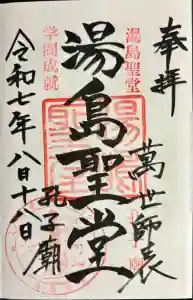 奉拝
湯島聖堂
萬世師表
湯島聖堂
孔子廟
学問成就
令和七年八月十八日